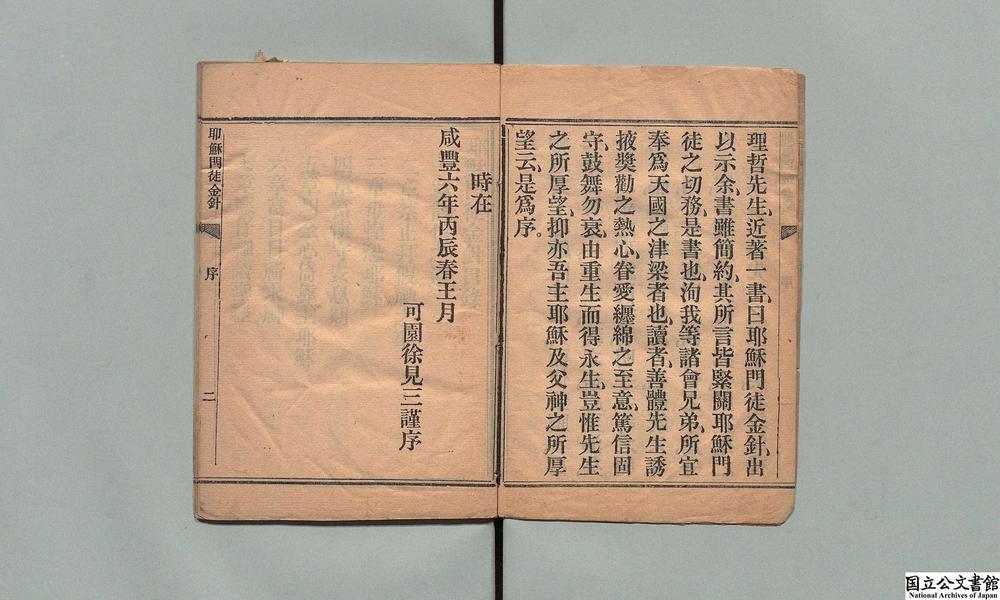 理哲先生、近著一書、曰耶穌門徒金針、出
以示余、書雖簡約、其所言皆緊關耶穌門
徒之切務、是書也、洵我等諸會兄弟、所宜
奉爲天國之津梁者也、讀者、善體先生誘
掖獎勸之熱心、眷愛纏綿之至意、篤信固
守、鼓舞勿衰、由重生而得永生、豈惟先生
之所厚望、抑亦吾主耶穌及父神之所厚
望云、是爲序。
時在
咸豐六年丙辰春王月
可園徐見三謹序
耶穌門徒金針
序
二
国立公文書館
National Archives of Japan